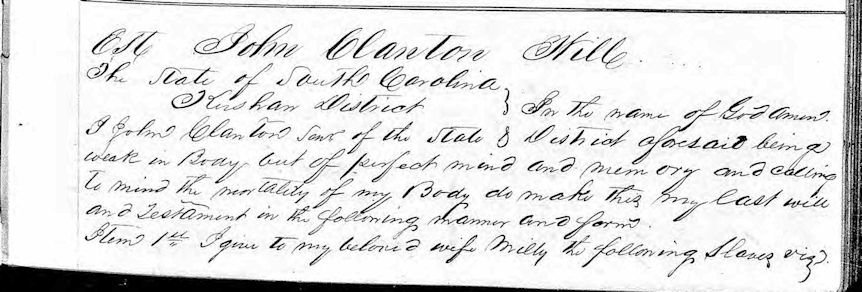 Est John Clanton Will
The State of South Carolina
Kershaw District } In the name of God amen.
I John Clanton Senr of the State & District aforesaid being
weak in Body but of perfect mind and memory and calling
to mind the mortality of my Body do make this my last will
and Testament in the following manner and form.
Item 1st I give to my beloved wife Milly the following Slaves viz.